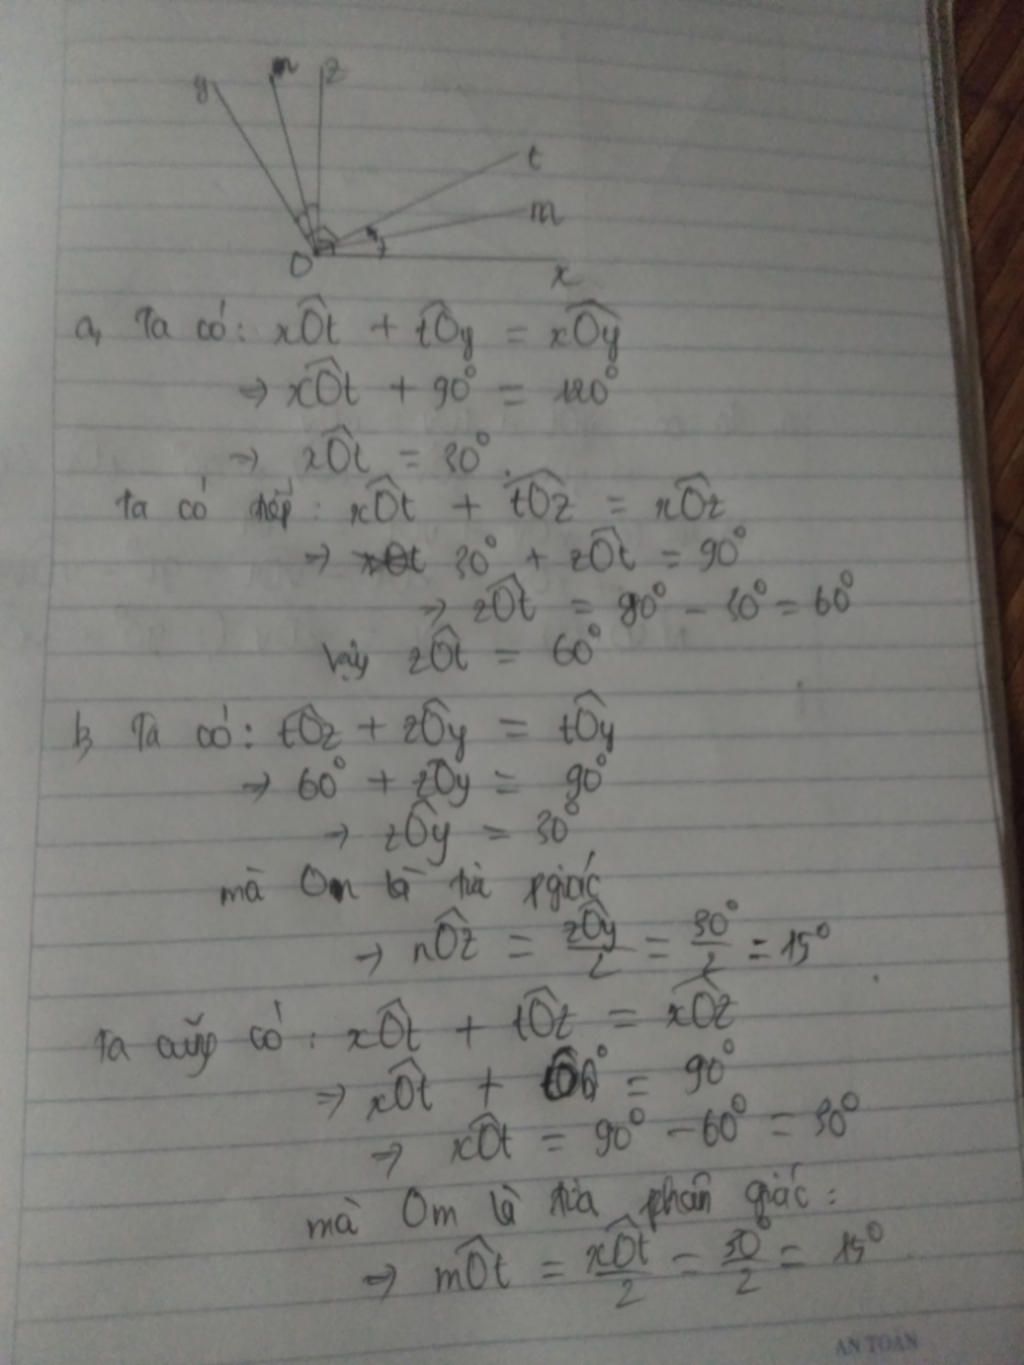 y n z
t
m
O
x
a, Ta có: xÔt + tÔy = xÔy
⇒ xÔt + 90° = 120°
⇒ xÔt = 30°.
Ta có tiếp: xÔt + tÔz = xÔz
⇒ 30° + zÔt = 90°
⇒ zÔt = 90° - 30° = 60°
Vậy zÔt = 60°
b, Ta có: tÔz + zÔy = tÔy
⇒ 60° + zÔy = 90°
⇒ zÔy = 30°
mà On là tia pgiác
⇒ nÔz = zÔy/2 = 30°/2 = 15°
Ta cũng có: xÔt + tÔz = xÔz
⇒ xÔt + 60° = 90°
⇒ xÔt = 90° - 60° = 30°
mà Om là tia phân giác:
⇒ mÔt = xÔt/2 = 30°/2 = 15°
AN TOÀN